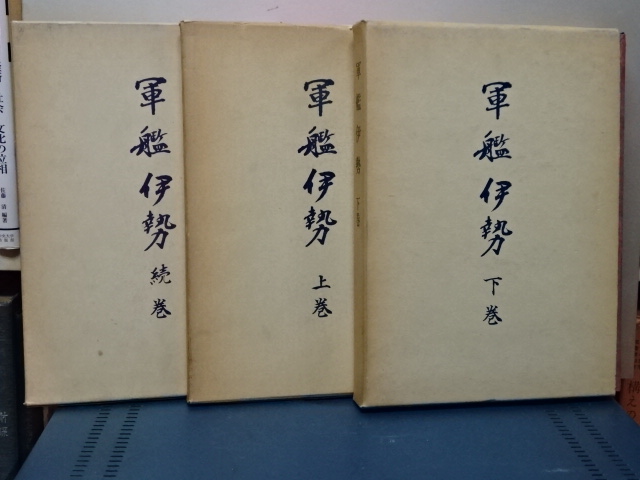 軍艦伊勢 続巻
軍艦伊勢 上巻
軍艦伊勢 下巻
軍艦伊勢 下巻
文化の位相